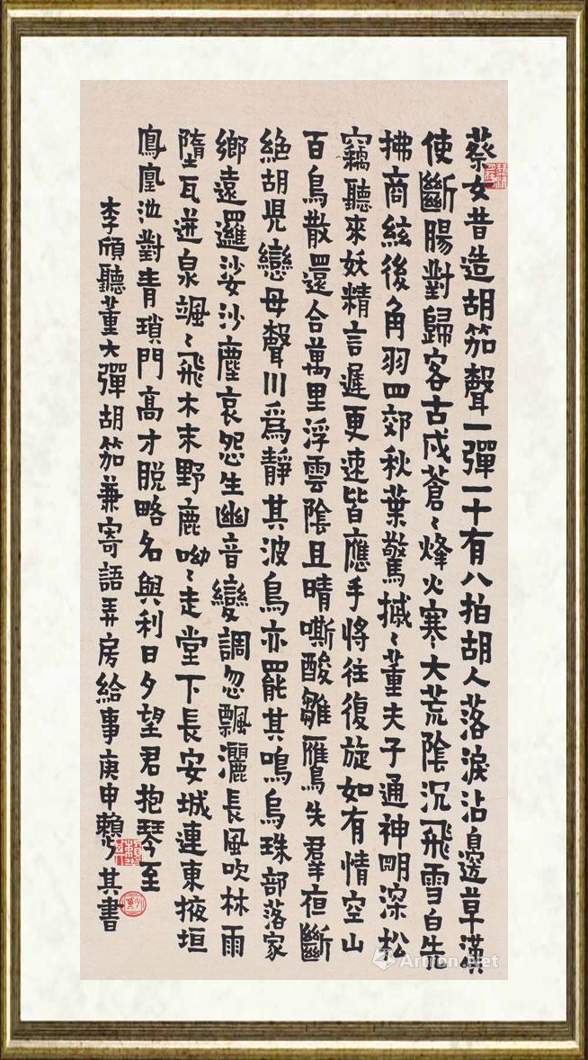 蔡女昔造胡笳聲一彈一十有八拍胡人落淚沾邊草漢
使斷腸對歸客古戍蒼〻烽火寒大荒陰沉飛雪白先
拂商絃後角羽四郊秋葉驚摵〻董夫子通神明深松
竊聽來妖精言遲更速皆應手將往復旋如有情空山
百鳥散還合萬里浮雲陰且晴嘶酸雛鴈失羣夜斷
絕胡兒戀母聲川爲靜其波鳥亦罷其鳴烏珠部落家
鄉遠邏娑沙塵哀怨生幽音變調忽飄灑長風吹林雨
墮瓦迸泉颯〻飛木末野鹿呦〻走堂下長安城連東掖垣
鳳凰池對青瑣門高才脫略名與利日夕望君抱琴至
李頎聽董大彈胡笳兼寄語弄房給事庚申賴少其書
Artron.Net